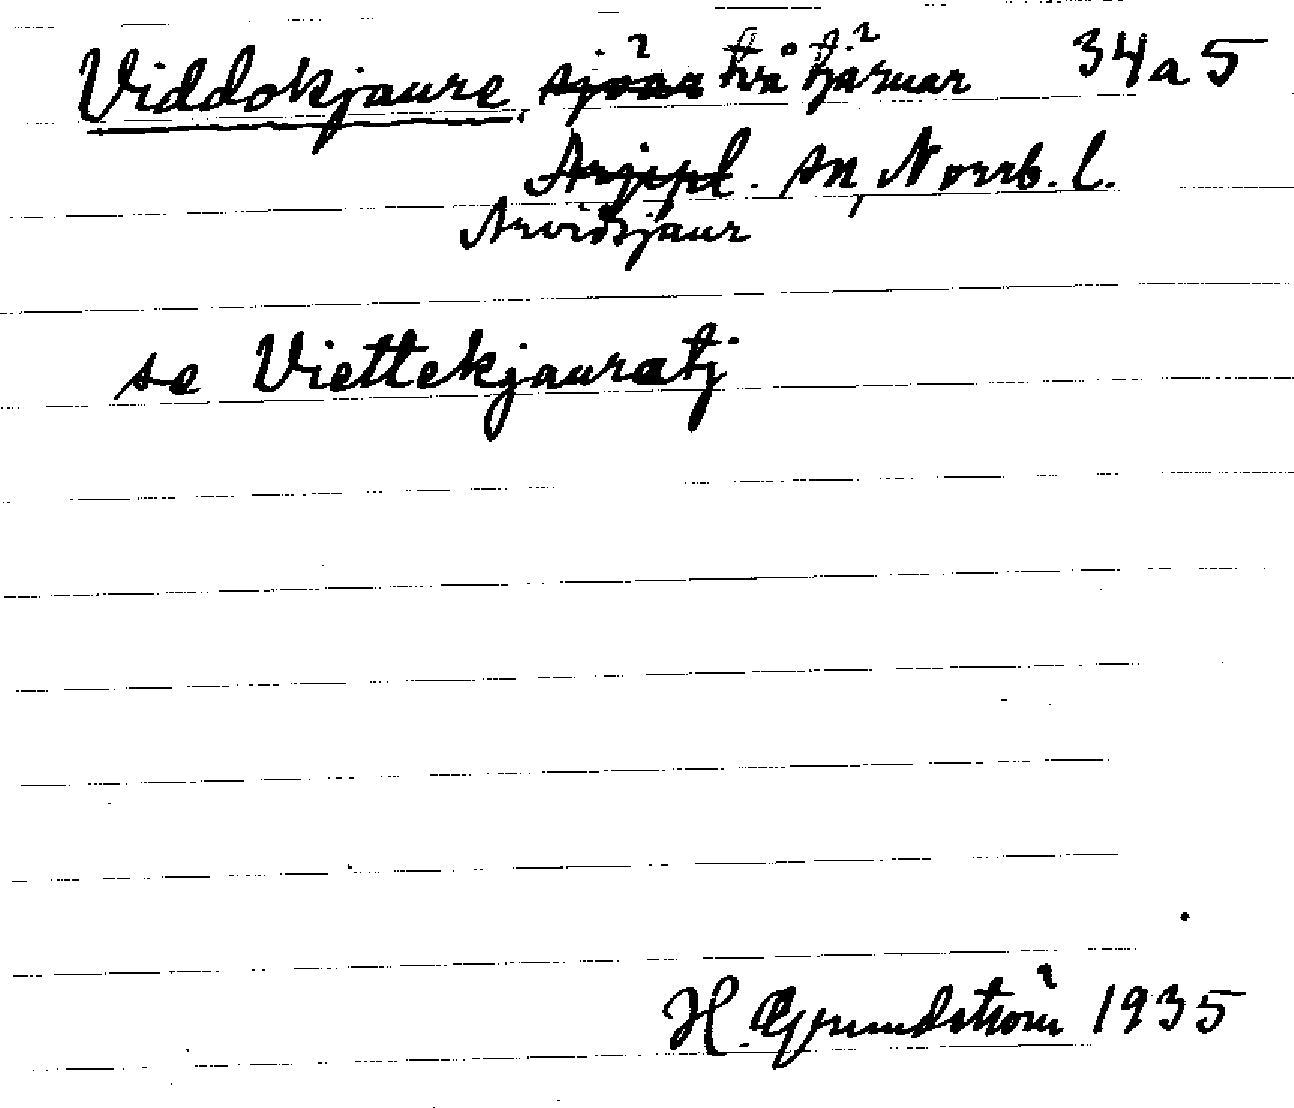 Viddokjaure, sjöar två tjärnar 34a5
Arjepl. sn, Norrb. l.
Arvidsjaur
se Viettekjauratj
H. Grundström 1935